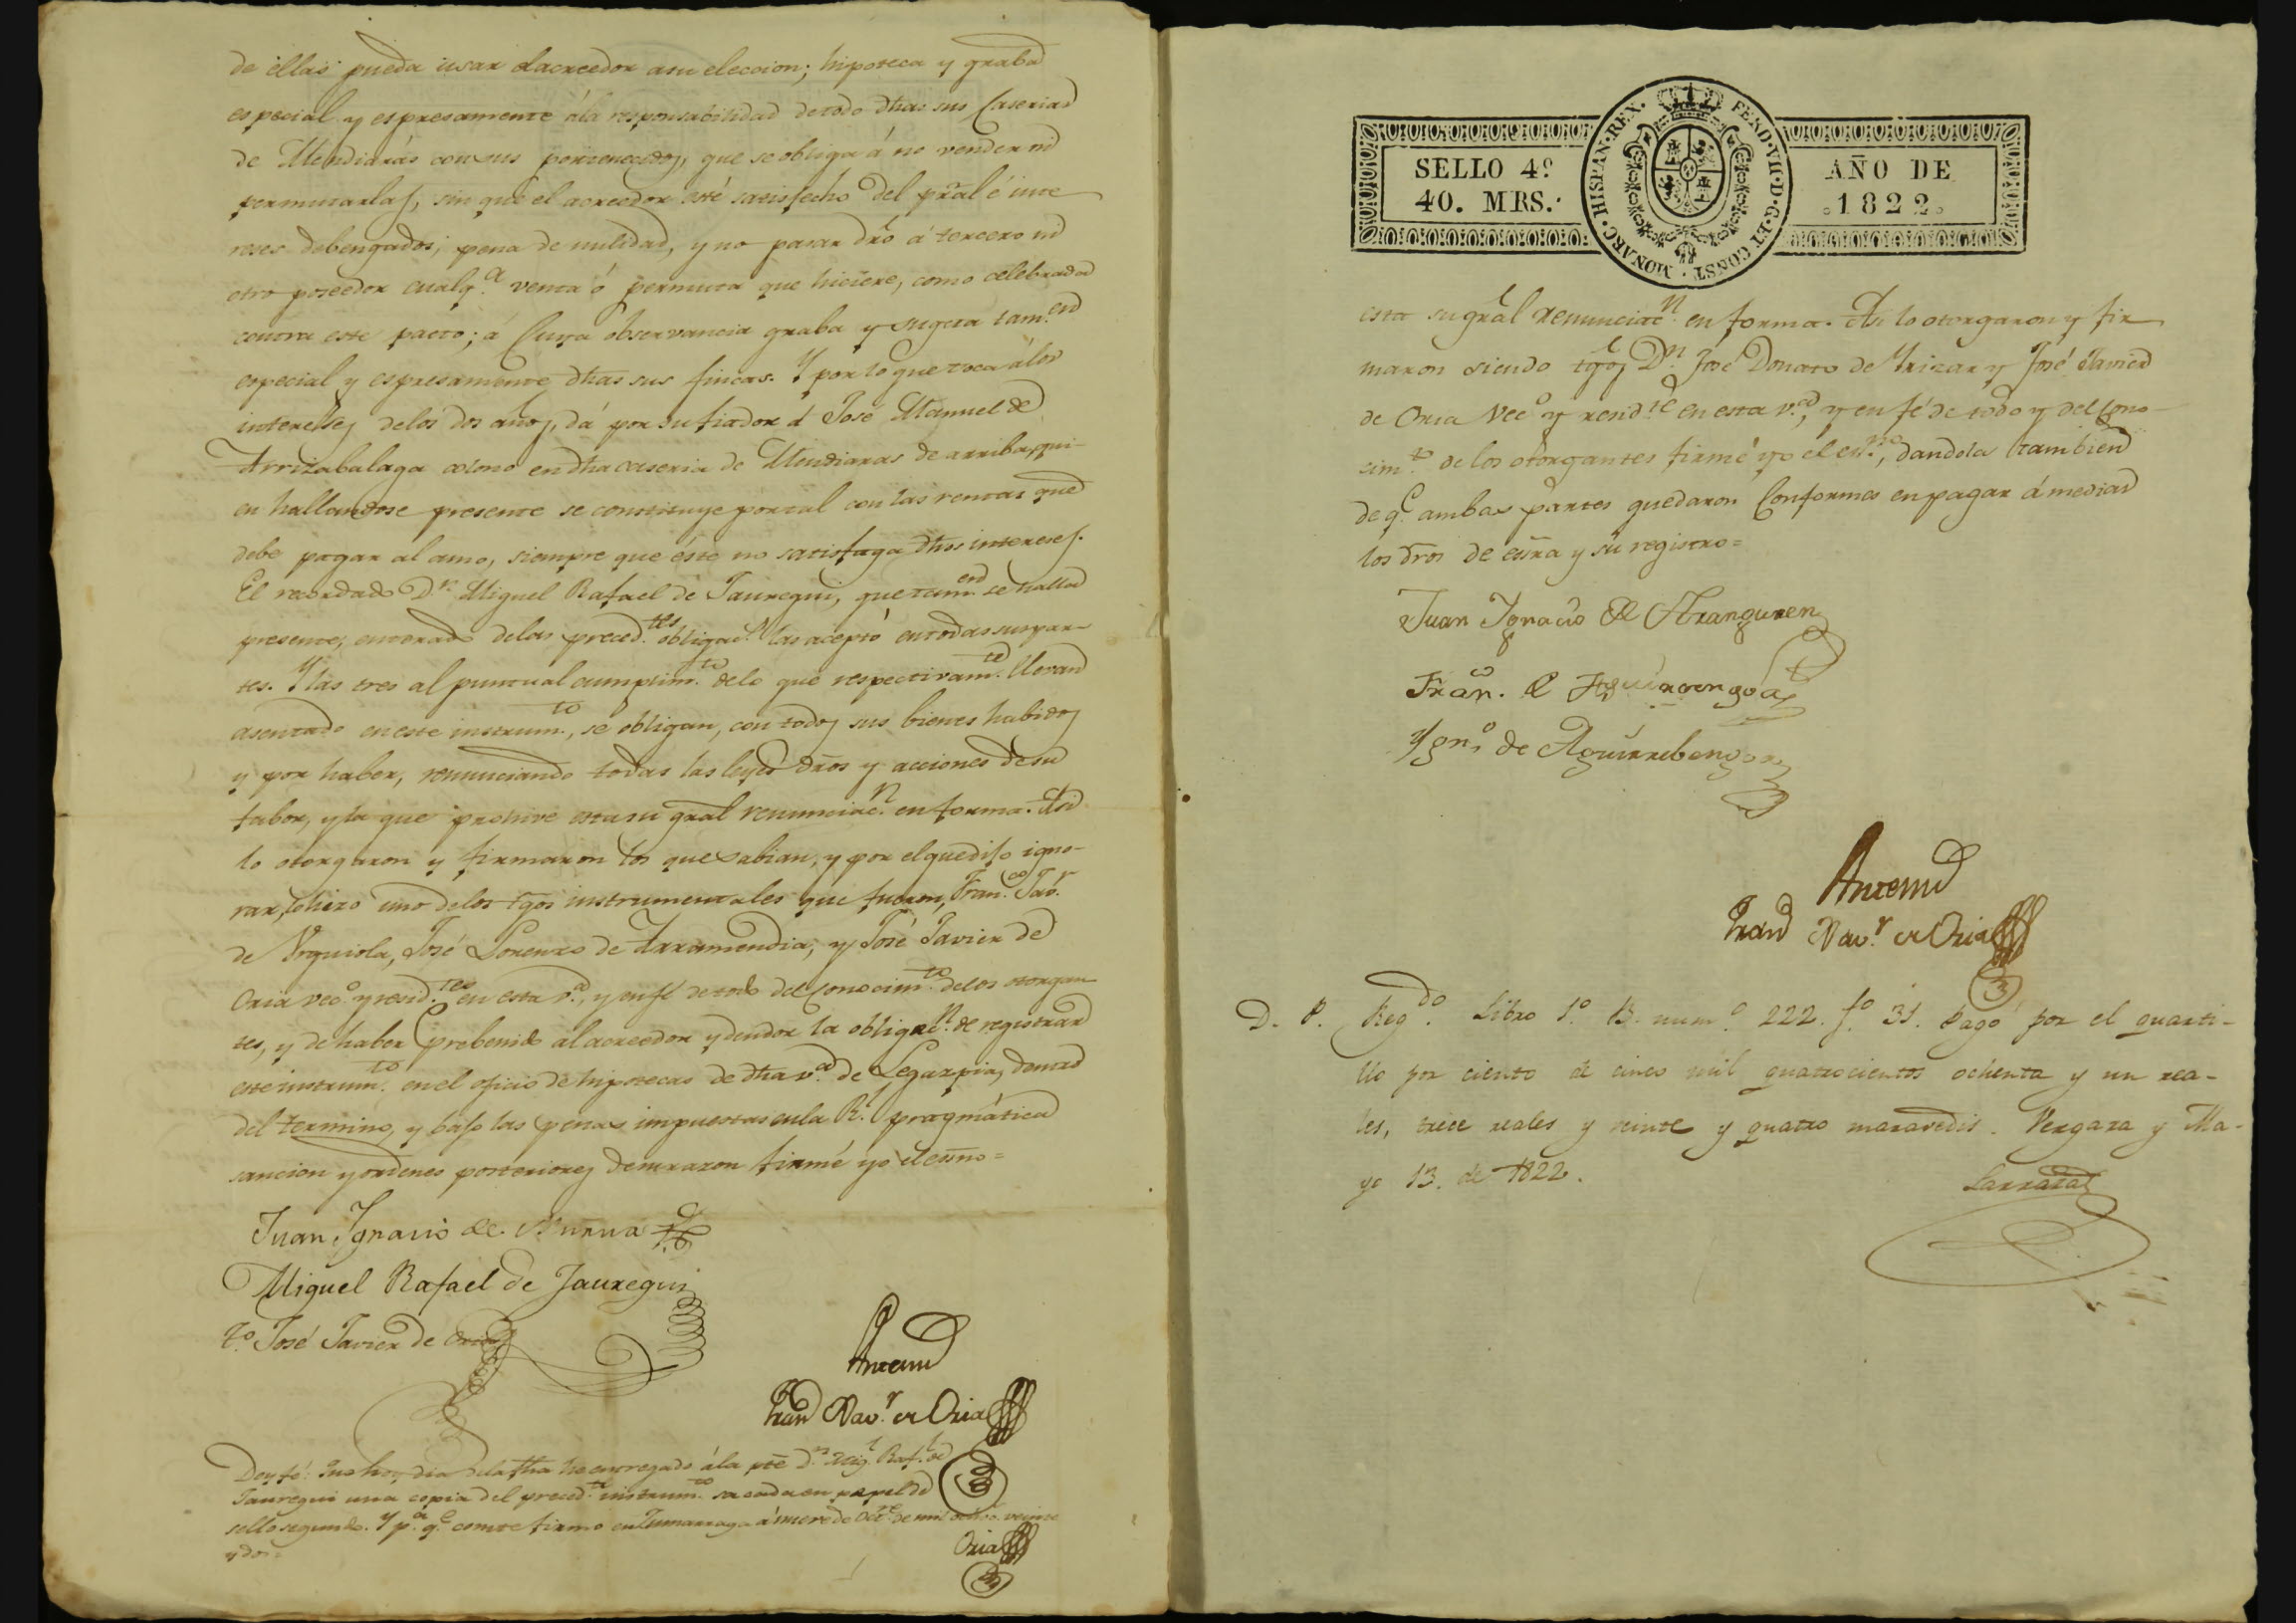 de ellas pueda usar el acreedor a su eleccion; hipoteca y graba
especial y espresamente á la responsabilidad de todo dhas sus Caserias
de Mendiaras con sus pertenecidos, que se obliga á no vender ni
permutarlas, sin que el acreedor esté satisfecho del pral é inte
reses debengados; pena de nulidad, y no pasar dro á tercero ni
otro poseedor cualq.a venta ó permuta que hiciere, como celebrada
contra este pacto; á Cuya observancia graba y sugeta tam.en
especial y espresamente dhas sus fincas. Y por lo que toca á los
intereses de los dos años, dá por su fiador á José Manuel de
Arrizabalaga colono en dha caseria de Mendiaras de arriba, qui-
en hallandose presente se constituye por tal con las rentas que
debe pagar al amo, siempre que éste no satisfaga dhos intereses.
El recordado D.n Miguel Rafael de Jauregui, que tam.en se halla
presente, enterado de las preced.tes obligac.s las aceptó en todas sus par-
tes. Y las tres al puntual cumplim.to de lo que respectivam.te llevan
asentado en este instrum.to, se obligan, con todos sus bienes habidos
y por haber, renunciando todas las leyes dros y acciones de su
fabor, y la que prohive esta su gral renunciac.n en forma. Asi
lo otorgaron y firmaron los que sabian, y por el que dijo igno-
rar, lo hizo uno de los tgos instrumentales que fueron, Fran.co Jav.r
de Urquiola, José Lorenzo de Arramendia, y José Javier de
Oria vec.o y resid.tes en esta v.a, y en fé de todo del conocim.to de los otorgan
tes, y de haber prebenido al acreedor y deudor la obligac.n de registrar
este instrum.to en el oficio de hipotecas de dha v.a de Legazpia, dentro
del termino, y bajo las penas impuestas en la R.l pragmática
sancion y ordenes posteriores firmé yo el esno=
Juan Ygnacio de Murua
Miguel Rafael de Jauregui
T.o José Javier de Oria
Antemi
Fran Xav.r de Oria
Doy fé: Que hoy dia de la fha he entregado á la pte D.n Mig.l Raf.l de
Jauregui una copia del preced.te instrum.to sacada en papel de
sello segundo. Y p.a q.e conste firmo en Zumarraga á nueve de de mil ochoc.s veinte
y dos=
Oria
SELLO 4º
40. MRS.
HISPAN·REX· FERD·VII·D·G·ET CONST· MONARC·
AÑO DE
1822
esta su gral renunciac.n en forma. Asi lo otorgaron y fir
maron siendo tgos D.n José Donato de Yrizar y José Javier
de Oria Vec.o y resid.te en esta v.a, y en fé de todo y del Cono-
cim.to de los otorgantes firmé yo el es.no, dandola tambien
de q.e ambas partes quedaron Conformes en pagar á medias
los dros de esra y su registro=
Juan Ygnacio de Aranguren
Fran.co de
Ygn.o de Aguirrebengoa
Antemi
Fran Xav.r de Oria
D. P. Reg.do Libro 1.o B. num.o 222. f.o 31. Pagó por el quarti-
llo por ciento de cinco mil quatrocientos ochenta y un rea-
les, trece reales y veinte y quatro maravedis. Vergara y Ma-
yo 13. de 1822.